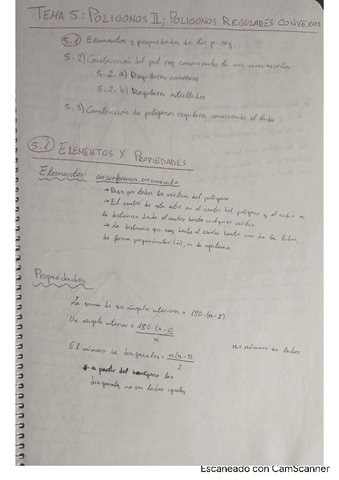 TEMA 5: POLIGONOS II; POLIGONOS REGULARES CONVEXOS
5.1) Elementos y propiedades de los p. reg
5.2) Construcción del pol reg conociendo la circ circunscrita
5.2.a) Regulares convexos
5.2.b) Regulares estrellados
5.3) Construcción de polígonos regulares conociendo el lado
5.1 ELEMENTOS Y PROPIEDADES
Elementos: circunferencia circunscrita
→ Pasa por todos los vértices del polígono
→ El centro de esta circ es el centro del polígono y el radio es
la distancia desde el centro hasta cualquier vértice
→ La distancia que hay desde el centro hasta uno de los lados,
de forma perpendicular (⊥), es la apotema
Propiedades
La suma de sus ángulos interiores = 180·(n-2)
Un ángulo interior = 180(n-2)/n
n = número de lados
El número de diagonales = n(n-3)/2
* a partir del hexágono las
diagonales no son todas iguales
Escaneado con CamScanner